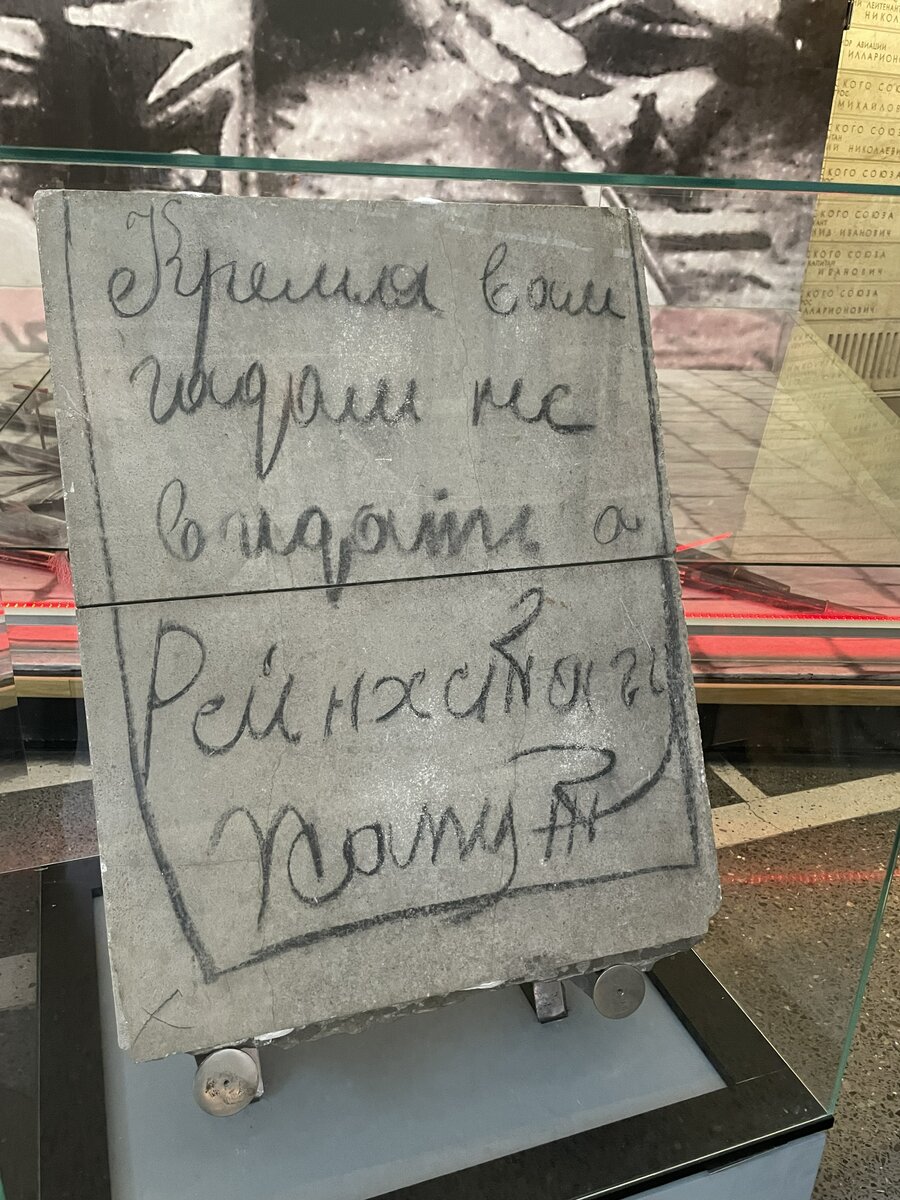 Кремля вам
гадам не
видать а
Рейнхстагу
капут
ЛЕЙТЕНАНТ
НИКОЛ
ОР АВИАЦИИ
ИЛЛАРИОН
СКОГО СОЮ
МИХАЙЛОВ
СКОГО СОЮЗ
ИЙ НИКОЛАЕВИ
СКОГО СОЮЗА
СКОГО СОЮЗА
НИД ИВАНОВИЧ
СКОГО СОЮЗА
КАПИТАН
ИВАНОВИЧ
СКОГО СОЮЗА
ЛЛАРИОНОВИЧ